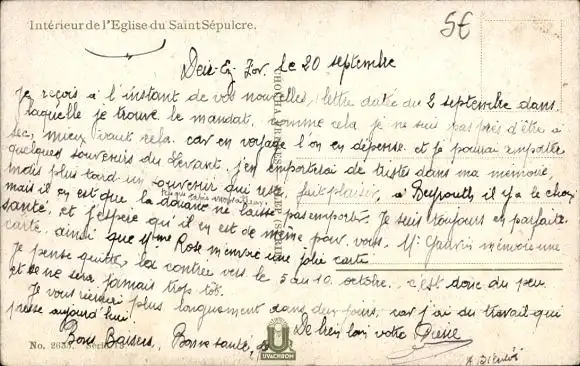 Intérieur de l'Eglise du Saint Sépulcre.
5€
Deir-Ez-Zor. le 20 septembre
Je reçois à l'instant de vos nouvelles, lettre datée du 2 septembre dans
laquelle je trouve le mandat, comme cela je ne suis pas près d'être à
sec, mieux vaut cela. car en voyage l'on en dépense. et je pouvai emporter
quelques souvenirs du Levant. j'en emporterai de tristes dans ma mémoire,
mais plus tard un souvenir qui reste, fait plaisir, à Beyrouth il y a le choix
mais il en est que la douane ne laisse pas emporter. Je suis toujours en parfaite
santé, et j'espère qu'il en est de même pour vous. Mr m'envoie une
carte, ainsi que Mme Rose m'envoie une jolie carte.
Je pense quitter la contrée vers le 5 au 10 octobre. c'est donc du peu
et ce ne sera jamais trop tôt.
Je vous plus longuement dans deux jours, car j'ai du travail qui
presse aujourd'hui.
Bons Baisers, Bonne santé, De bien loin votre Pierre
No. Série
UVACHROM